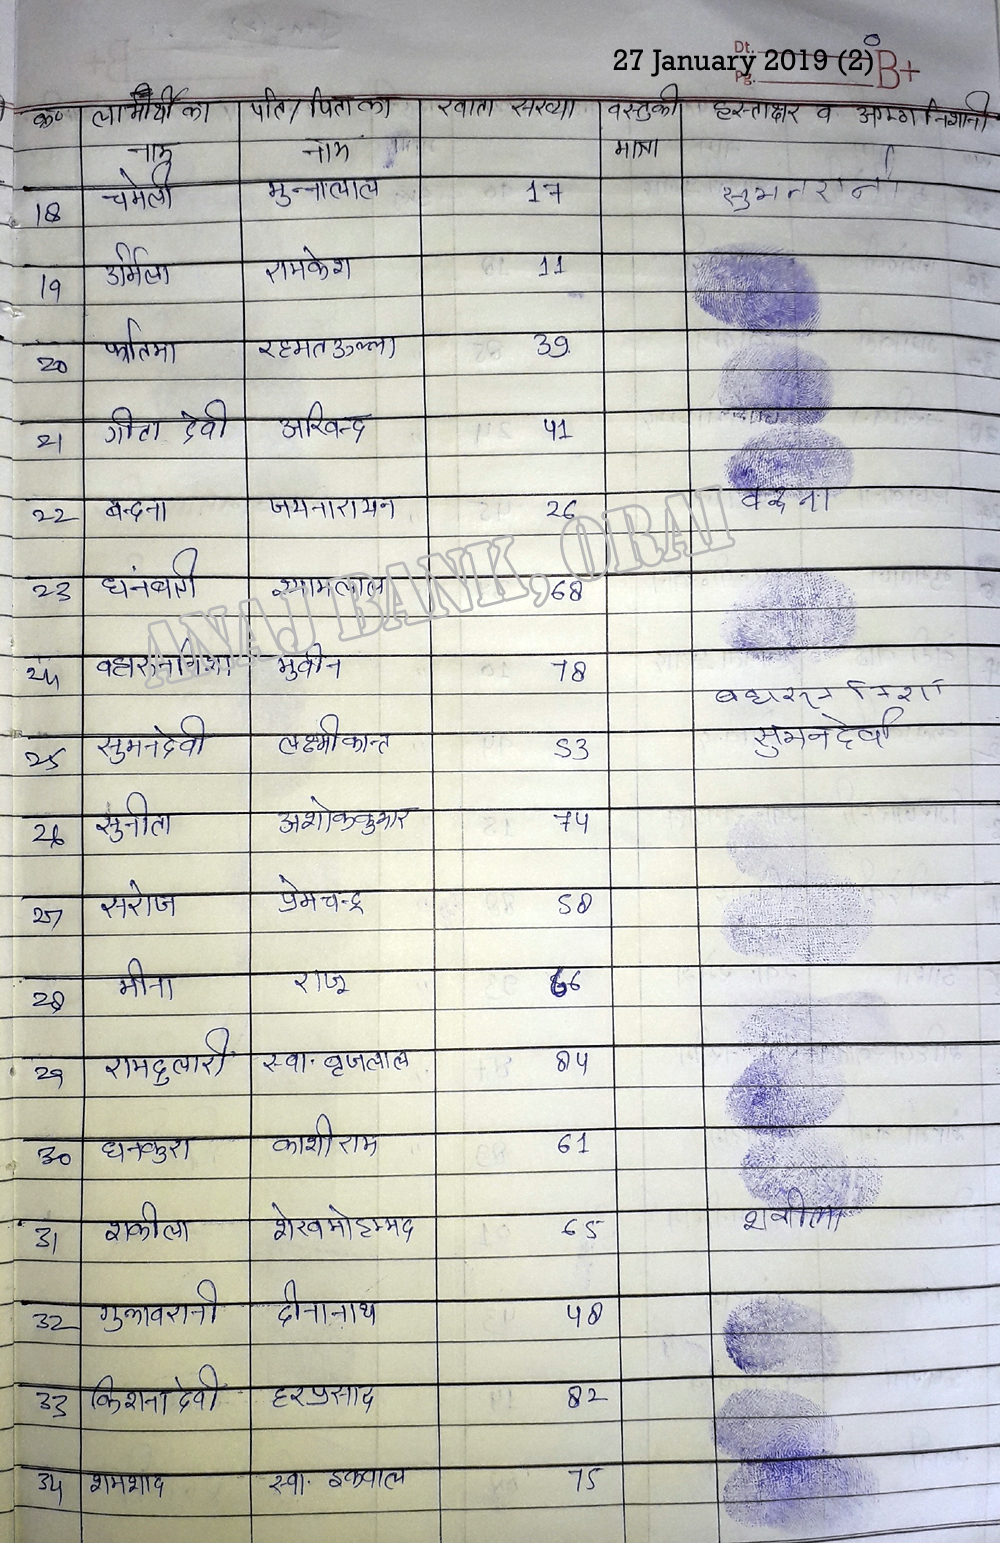 Dt.
27 January 2019 (2) B+
Pg.
क्र० लाभार्थी का पति/पिता का खाता संख्या वस्तु की हस्ताक्षर व अगूठा निशानी
नाम नाम मात्रा
18 चमेली मुन्नालाल 17 सुमन रानी
19 उर्मिला रामकेश 11
20 फातिमा रहमतउल्ला 39
21 गीता देवी अरविन्द 41
22 बन्दना जयनारायन 26 वंदना
23 श्यामलाल 68
ANAJ BANK, ORAI
24 मुवीन 78
25 सुमनदेवी लक्ष्मीकान्त 53 सुमन देवी
26 सुनीता अशोककुमार 74
27 सरोज प्रेमचन्द्र 58
28 मीना राजू 66
29 रामदुलारी स्वा. बृजलाल 84
30 धनकुरा काशीराम 61
31 शकीला शेखमोहम्मद 65 शकीला
32 गुलाबरानी दीनानाथ 48
33 किशना देवी हरप्रसाद 82
34 शमशाद स्वा. इकवाल 75